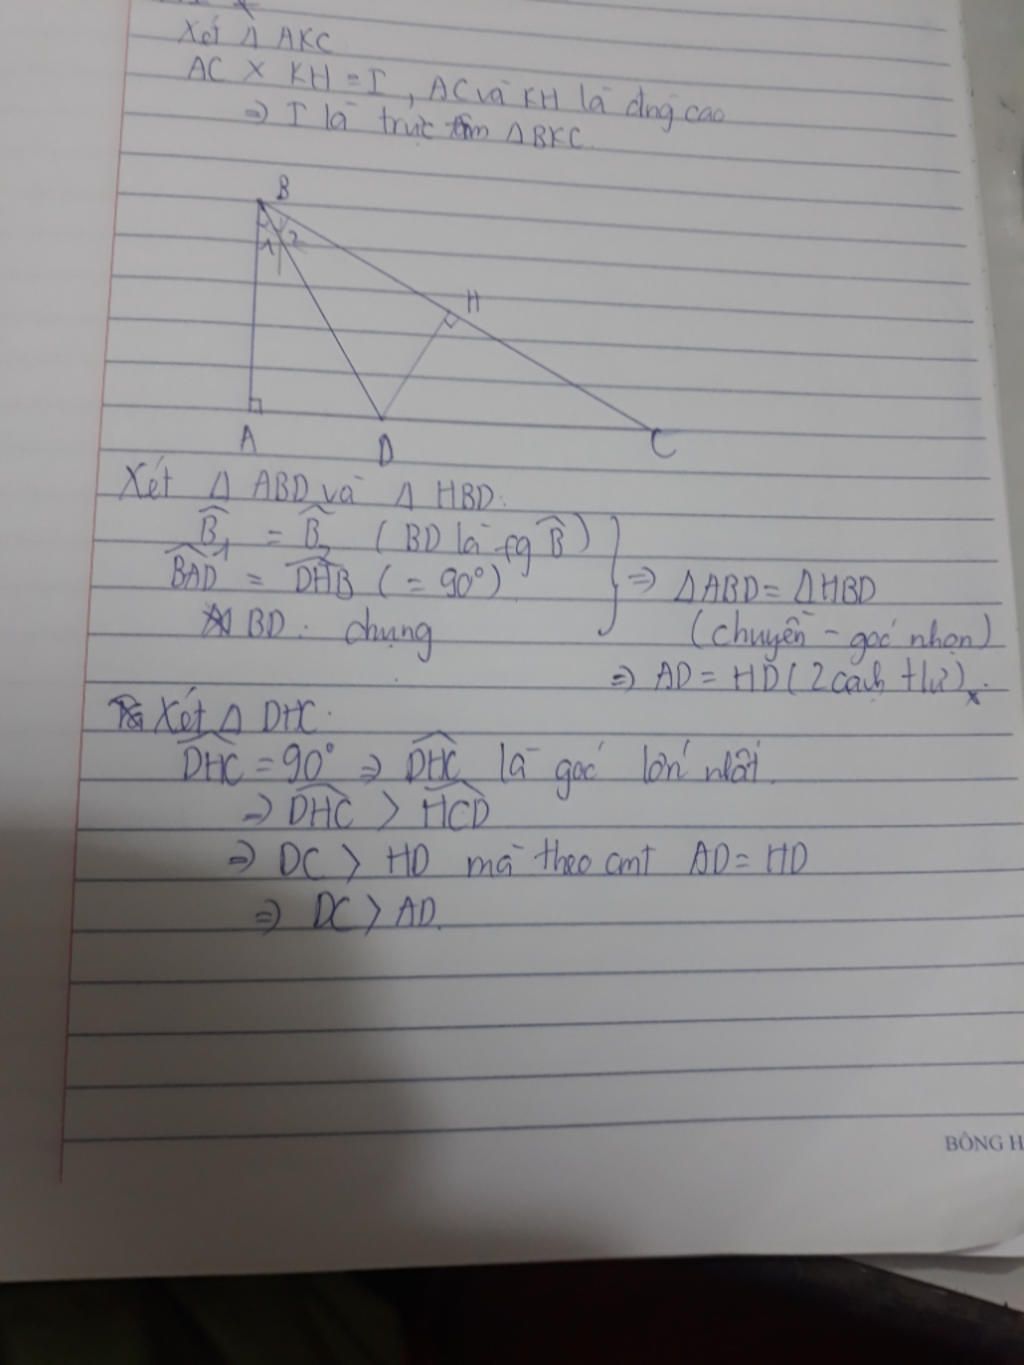 Xét Δ AKC
AC X KH = I, AC và KH là đng cao
⇒ I là trực tâm ΔBKC.
B
1 2
H
A
D
C
Xét Δ ABD và Δ HBD:
B̂₁ = B̂₂ (BD là fg B̂)
BAD = DHB (= 90°)
BD: chung
⇒ ΔABD = ΔHBD
(chuyền - goć nhọn)
⇒ AD = HD (2 cạnh t/ư)
Xét Δ DHC:
DHC = 90° ⇒ DHC là goć lớn nhất.
⇒ DHC > HCD
⇒ DC > HD mà theo cmt AD = HD
⇒ DC > AD.
BÔNG H